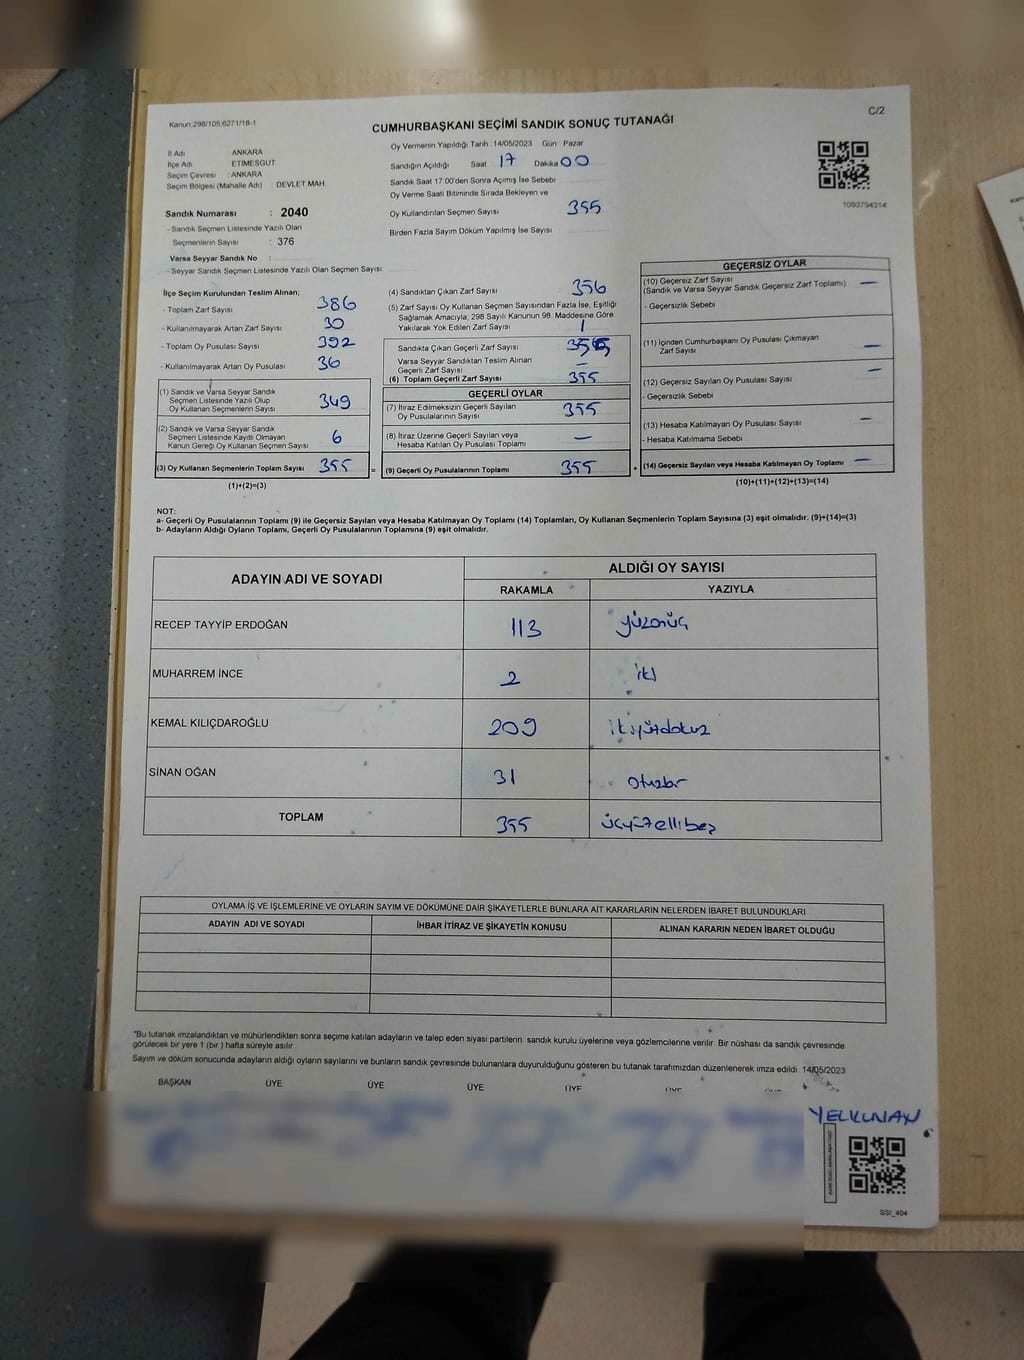 Kanun:298/105;6271/18-1
C/2
CUMHURBAŞKANI SEÇİMİ SANDIK SONUÇ TUTANAĞI
İl Adı ANKARA
İlçe Adı ETİMESGUT
Seçim Çevresi : ANKARA
Seçim Bölgesi (Mahalle Adı) DEVLET MAH.
Sandık Numarası : 2040
- Sandık Seçmen Listesinde Yazılı Olan
Seçmenlerin Sayısı : 376
Varsa Seyyar Sandık No :
- Seyyar Sandık Seçmen Listesinde Yazılı Olan Seçmen Sayısı
Oy Vermenin Yapıldığı Tarih 14/05/2023 Gün Pazar
Sandığın Açıldığı Saat 17 Dakika 00
Sandık Saat 17:00'den Sonra Açımış İse Sebebi
Oy Verme Saati Bitiminde Sırada Bekleyen ve
Oy Kullandırılan Seçmen Sayısı 355
Birden Fazla Sayım Döküm Yapılmış İse Sayısı
1093794314
İlçe Seçim Kurulundan Teslim Alınan;
- Toplam Zarf Sayısı 386
- Kullanılmayarak Artan Zarf Sayısı 30
- Toplam Oy Pusulası Sayısı 392
- Kullanılmayarak Artan Oy Pusulası 36
(1) Sandık ve Varsa Seyyar Sandık
Seçmen Listesinde Yazılı Olup
Oy Kullanan Seçmenlerin Sayısı 349
(2) Sandık ve Varsa Seyyar Sandık
Seçmen Listesinde Kayıtlı Olmayan
Kanun Gereği Oy Kullanan Seçmen Sayısı 6
(3) Oy Kullanan Seçmenlerin Toplam Sayısı 355 =
(1)+(2)=(3)
(4) Sandıktan Çıkan Zarf Sayısı 356
(5) Zarf Sayısı Oy Kullanan Seçmen Sayısından Fazla İse, Eşitliği
Sağlamak Amacıyla, 298 Sayılı Kanunun 98. Maddesine Göre
Yakılarak Yok Edilen Zarf Sayısı 1
Sandıkta Çıkan Geçerli Zarf Sayısı
Varsa Seyyar Sandıktan Teslim Alınan
Geçerli Zarf Sayısı –
(6) Toplam Geçerli Zarf Sayısı 355
GEÇERLİ OYLAR
(7) İtiraz Edilmeksizin Geçerli Sayılan
Oy Pusulalarının Sayısı 355
(8) İtiraz Üzerine Geçerli Sayılan veya
Hesaba Katılan Oy Pusulası Toplamı –
(9) Geçerli Oy Pusulalarının Toplamı 355 +
GEÇERSİZ OYLAR
(10) Geçersiz Zarf Sayısı
(Sandık ve Varsa Seyyar Sandık Geçersiz Zarf Toplamı) –
- Geçersizlik Sebebi
(11) İçinden Cumhurbaşkanı Oy Pusulası Çıkmayan
Zarf Sayısı –
(12) Geçersiz Sayılan Oy Pusulası Sayısı –
- Geçersizlik Sebebi
(13) Hesaba Katılmayan Oy Pusulası Sayısı –
- Hesaba Katılmama Sebebi
(14) Geçersiz Sayılan veya Hesaba Katılmayan Oy Toplamı –
(10)+(11)+(12)+(13)=(14)
NOT:
a- Geçerli Oy Pusulalarının Toplamı (9) ile Geçersiz Sayılan veya Hesaba Katılmayan Oy Toplamı (14) Toplamları, Oy Kullanan Seçmenlerin Toplam Sayısına (3) eşit olmalıdır. (9)+(14)=(3)
b- Adayların Aldığı Oyların Toplamı, Geçerli Oy Pusulalarının Toplamına (9) eşit olmalıdır.
ADAYIN ADI VE SOYADI ALDIĞI OY SAYISI
RAKAMLA YAZIYLA
RECEP TAYYİP ERDOĞAN 113 yüzonüç
MUHARREM İNCE 2 iki
KEMAL KILIÇDAROĞLU 209 ikiyüzdokuz
SİNAN OĞAN 31 otuzbir
TOPLAM 355 üçyüzellibeş
OYLAMA İŞ VE İŞLEMLERİNE VE OYLARIN SAYIM VE DÖKÜMÜNE DAİR ŞİKAYETLERLE BUNLARA AİT KARARLARIN NELERDEN İBARET BULUNDUKLARI
ADAYIN ADI VE SOYADI İHBAR İTİRAZ VE ŞİKAYETİN KONUSU ALINAN KARARIN NEDEN İBARET OLDUĞU
*Bu tutanak imzalandıktan ve mühürlendikten sonra seçime katılan adayların ve talep eden siyasi partilerin sandık kurulu üyelerine veya gözlemcilerine verilir. Bir nüshası da sandık çevresinde
görülecek bir yere 1 (bir ) hafta süreyle asılır.
Sayım ve döküm sonucunda adayların aldığı oyların sayılarını ve bunların sandık çevresinde bulunanlara duyurulduğunu gösteren bu tutanak tarafımızdan düzenlenerek imza edildi. 14/05/2023
BAŞKAN ÜYE ÜYE ÜYE ÜYE ÜYE
YELKUNAN
SSI_404